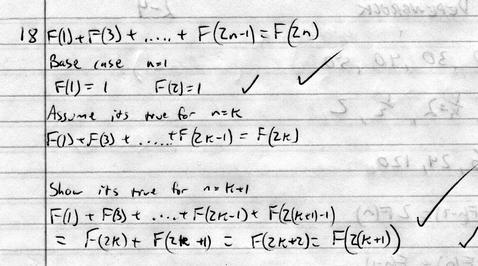 18 F(1) + F(3) + ..... + F(2n-1) = F(2n)
Base case n=1
F(1) = 1 F(2) = 1 ✓ ✓
Assume its true for n=k
F(1) + F(3) + ..... + F(2k-1) = F(2k)
Show its true for n=k+1
F(1) + F(3) + ... + F(2k-1) + F(2(k+1)-1)
= F(2k) + F(2k+1) = F(2k+2) = F(2(k+1)) ✓